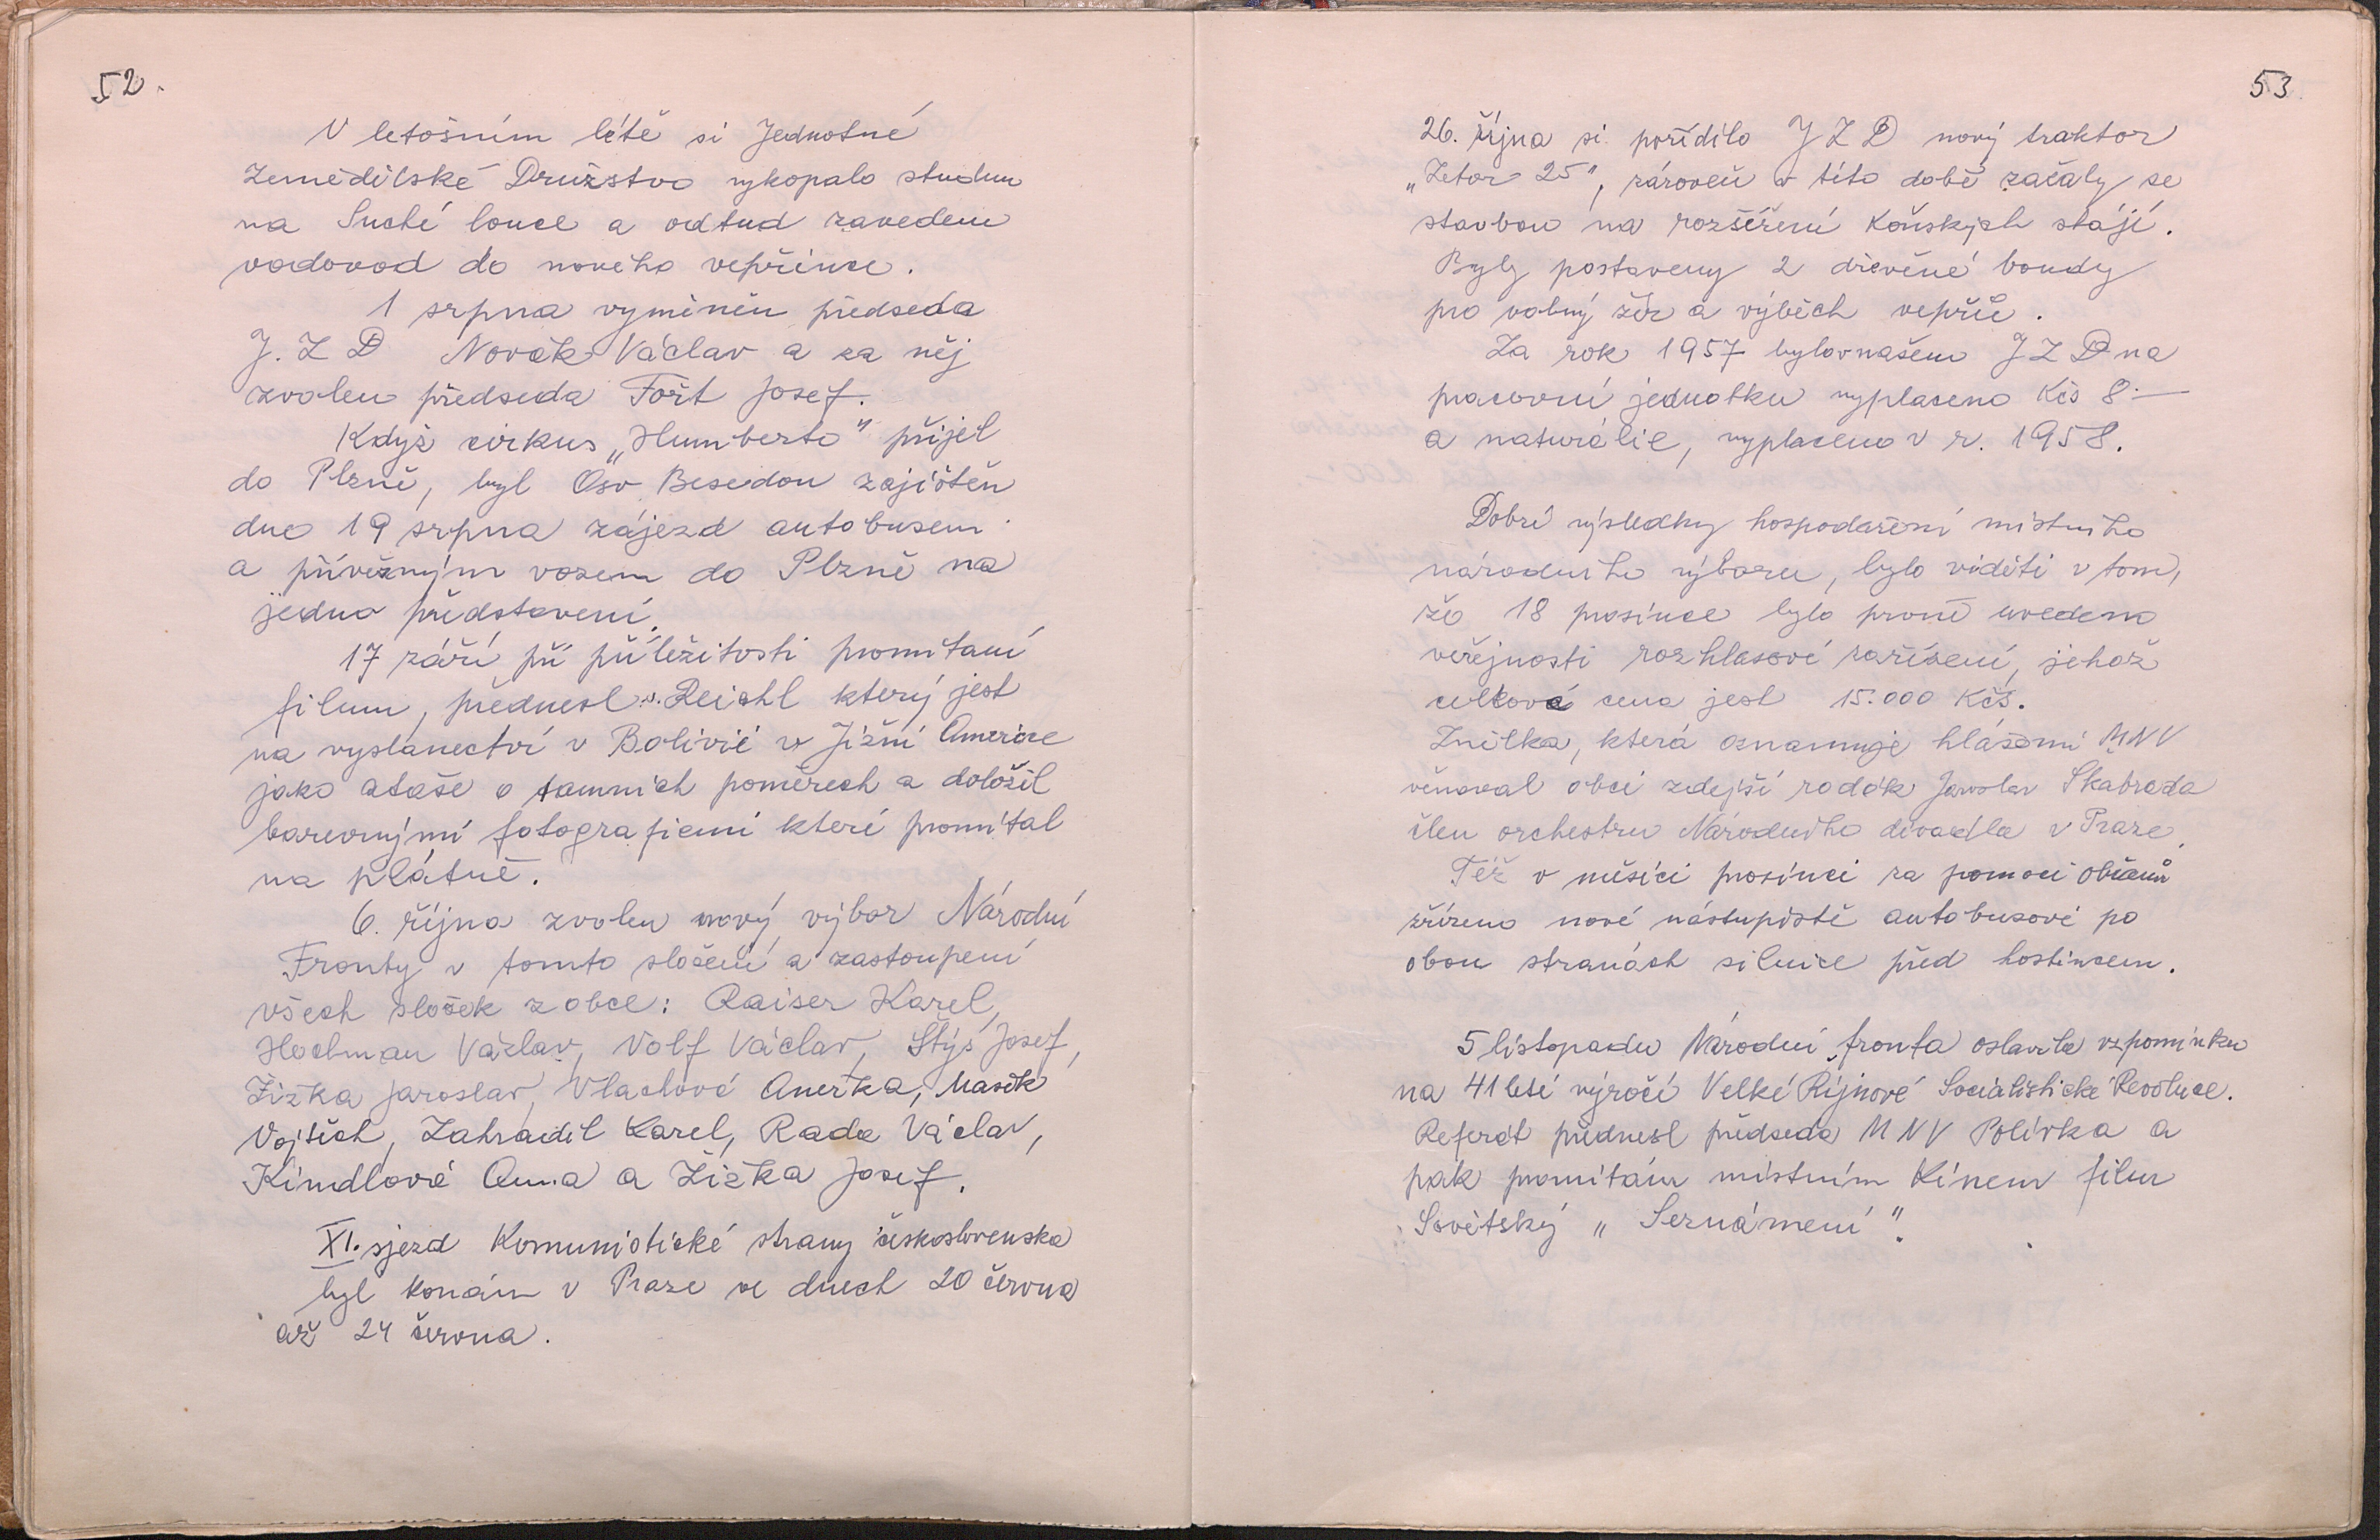 52.
V letošním létě si Jednotné
Zemědělské Družstvo vykopalo studnu
na Suché louce a odtud zaveden
vodovod do nového vepřince.
1 srpna vyměněn předseda
J. Z D Novák Václav a za něj
zvolen předseda Fořt Josef.
Když cirkus „Humberto" přijel
do Plzně, byl Osv. Besedou zajištěn
dne 19 srpna zájezd autobusem
a přívěsným vozem do Plzně na
jedno představení.
17 září při příležitosti promítaní
filmu, přednesl s. Reichl který jest
na vyslanectví v Bolivií v Jižní Americe
jako ataše o tamních poměrech a doložil
barevnými fotografiemi které promítal
na plátně.
6. října zvolen nový výbor Národní
Fronty v tomto složení a zastoupení
všech složek z obce: Raiser Karel,
Hochman Václav, Volf Václav, Štýs Josef,
Žižka Jaroslav, Vlachová Anežka, Mašek
Vojtěch, Zahradil Karel, Rada Václav,
Kindlová Anna a Žižka Josef.
XI. sjezd Komunistické strany československa
byl konán v Praze ve dnech 20 června
až 24 června.
53
26. října si pořídilo J Z D nový traktor
„Zetor 25", zároveň v této době začaly se
stavbou na rozšíření koňských stájí.
Byly postaveny 2 dřevěné boudy
pro volný žír a výběh vepřů.
Za rok 1957 bylo v našem J Z D na
pracovní jednotku vyplaceno Kčs 8.—
a naturálie, vyplaceno v r. 1958.
Dobré výsledky hospodaření místního
národního výboru, bylo viděti v tom,
že 18 prosince bylo prvně uvedeno
veřejnosti rozhlasové zařízení, jehož
celková cena jest 15.000 Kčs.
Znělka, která oznamuje hlášení MNV
věnoval obci zdejší rodák Jaroslav Skabrada
člen orchestru Národního divadla v Praze.
Též v měsíci prosinci za pomoci občanů
zřízeno nové nástupiště autobusové po
obou stranách silnice před hostincem.
5 listopadu Národní fronta oslavila vzpomínku
na 41 leté výročí Velké Říjnové Socialistické Revoluce.
Referát přednesl předseda MNV Polívka a
pak promítám místním Kinem film
Sovětský „ Seznámení ".